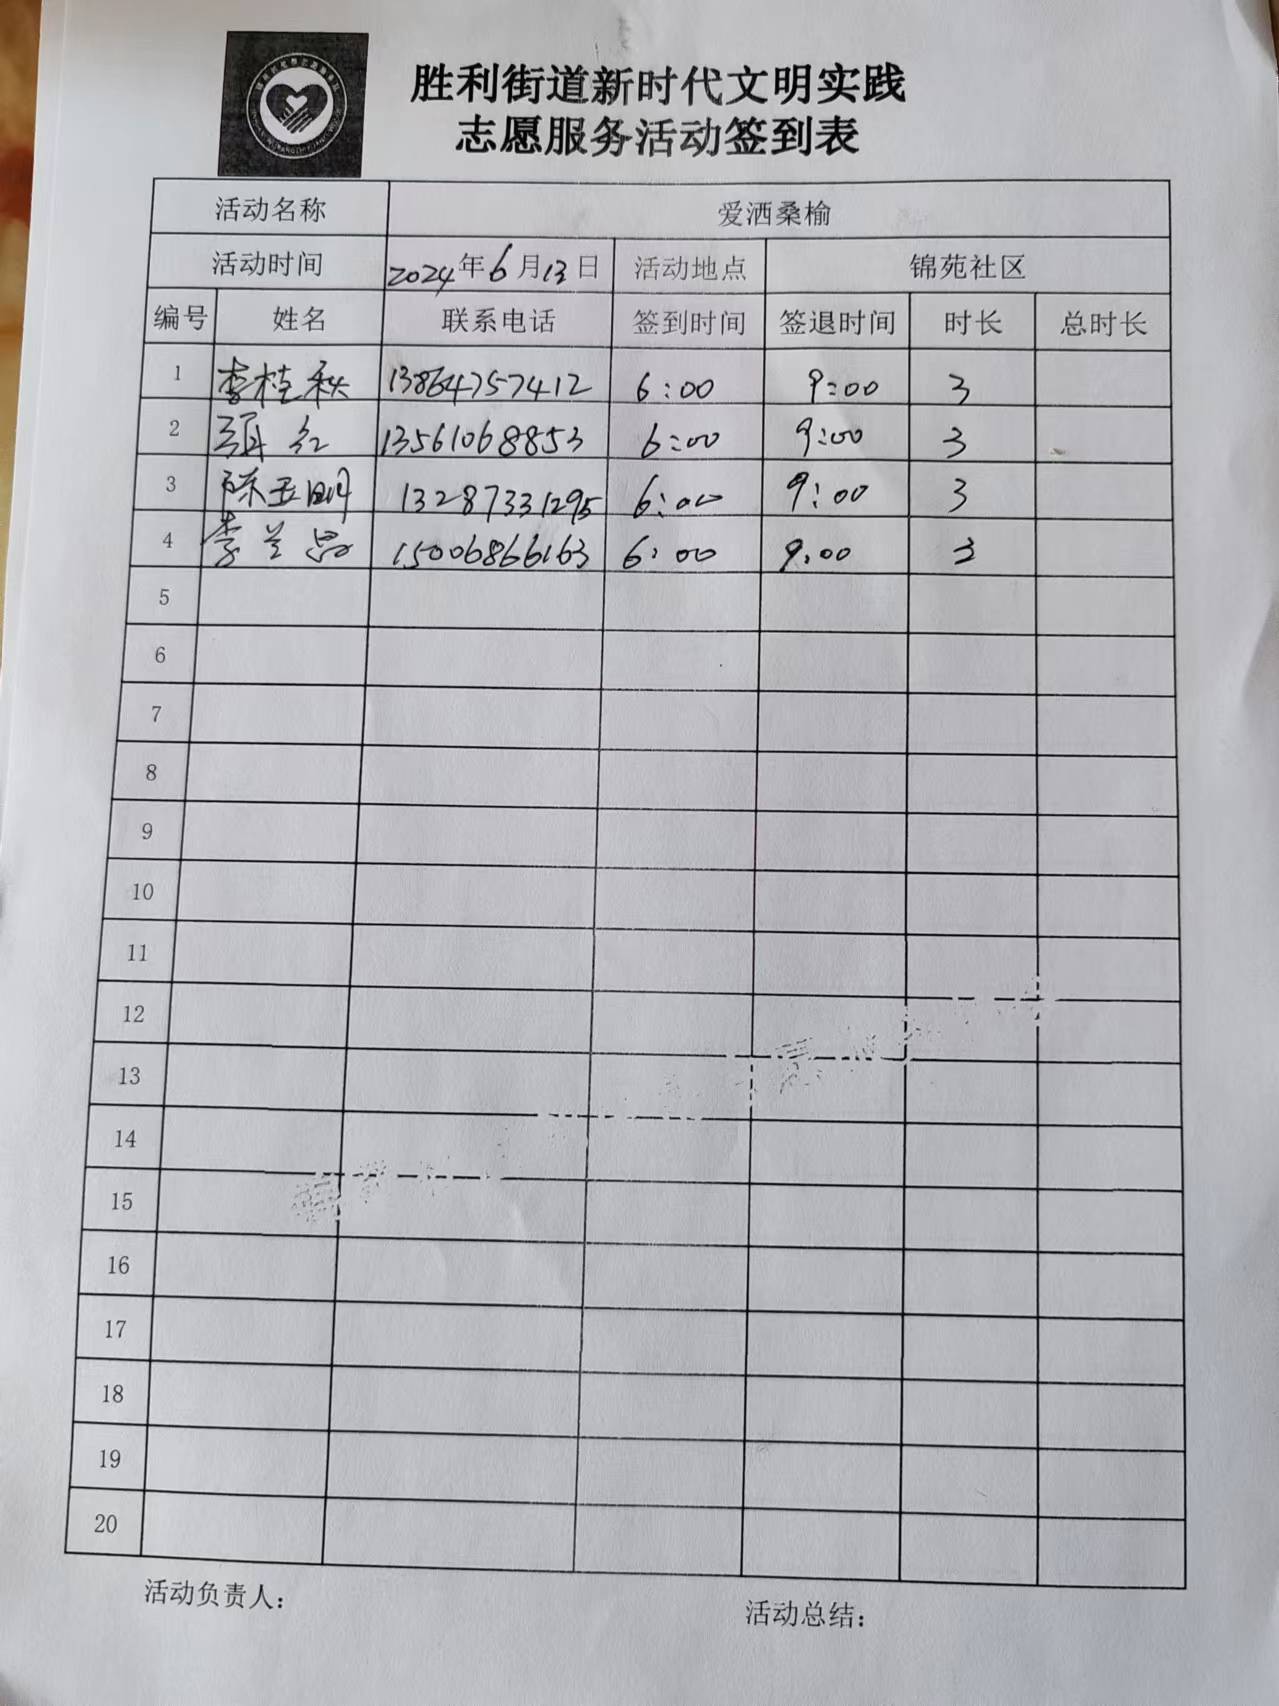 胜利街道新时代文明实践
志愿服务活动签到表
活动名称 爱洒桑榆
活动时间 2024年6月13日 活动地点 锦苑社区
编号 姓名 联系电话 签到时间 签退时间 时长 总时长
1 李桂秋 13864757412 6:00 9:00 3
2 红 13561068853 6:00 9:00 3
3 陈玉明 13287331295 6:00 9:00 3
4 李兰 15006866163 6:00 9:00 3
5
6
7
8
9
10
11
12
13
14
15
16
17
18
19
20
活动负责人： 活动总结：